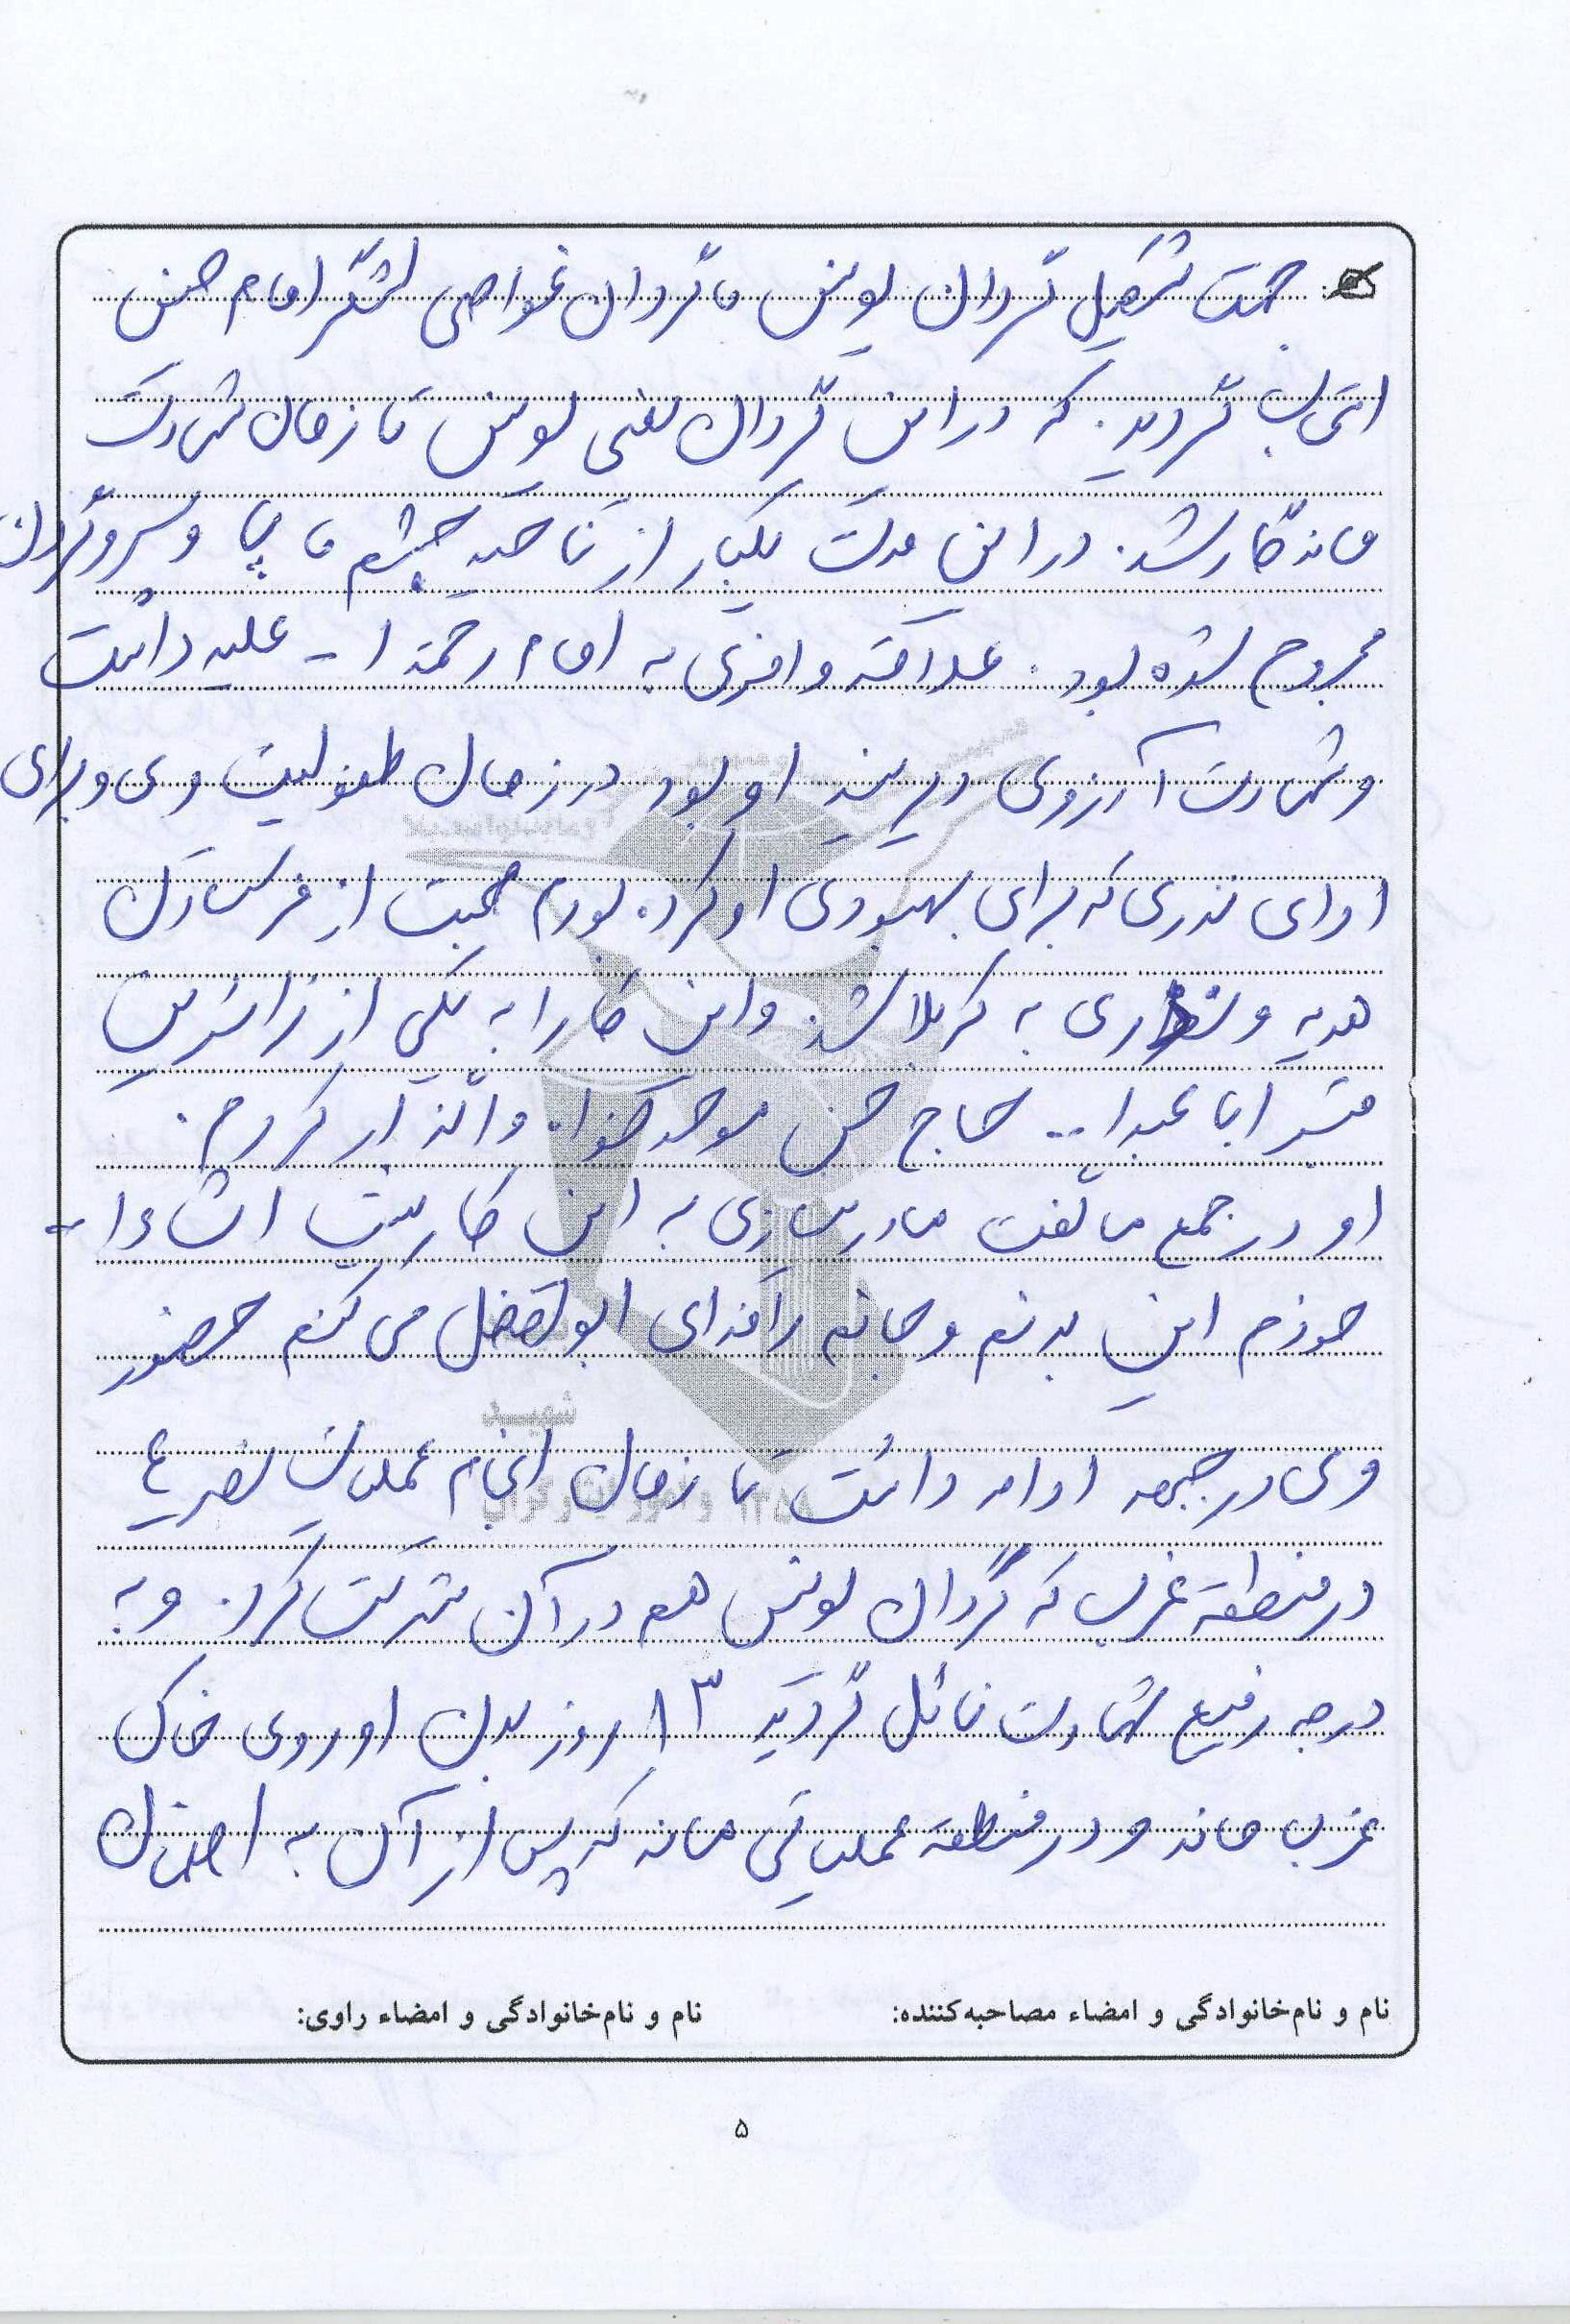 جهت تشکیل گردان یونس یا گردان غواصی لشگر امام حسین
انتخاب گردید. که در این گردان یعنی یونس تا زمان شهادت
ماندگار شد. در این مدت یکبار از ناحیه چشم یا پا و سر و گردن
مجروح شده بود. علاقه وافری به امام رحمة ا.. علیه داشت
و شهادت آرزوی دیرینه او بود در زمان طفولیت وی و برای
ادای نذری که برای بهبودی او کرده بودم صحبت از فرستادن
هدیه و نذری به کربلا شد. و این کار را به یکی از زائرین
قبر ابا عبدا... حاج حسن موحد واگذار کردم.
او در جمع ما گفت مادر نیازی به این کار نیست انشاءا..
خودم این بدنم و جانم را فدای ابوالفضل می کنم حضور
وی در جبهه ادامه داشت تا زمان انجام عملیات نصر ۴
در منطقه غرب که گردان یونس هم در آن شرکت کرد. و به
درجه رفیع شهادت نائل گردید ۱۳ روز بدن او روی خاک
غرب ماند و در منطقه عملیاتی ماند که پس از آن به اصفهان
نام و نام‌خانوادگی و امضاء مصاحبه‌کننده: نام و نام‌خانوادگی و امضاء راوی:
۵